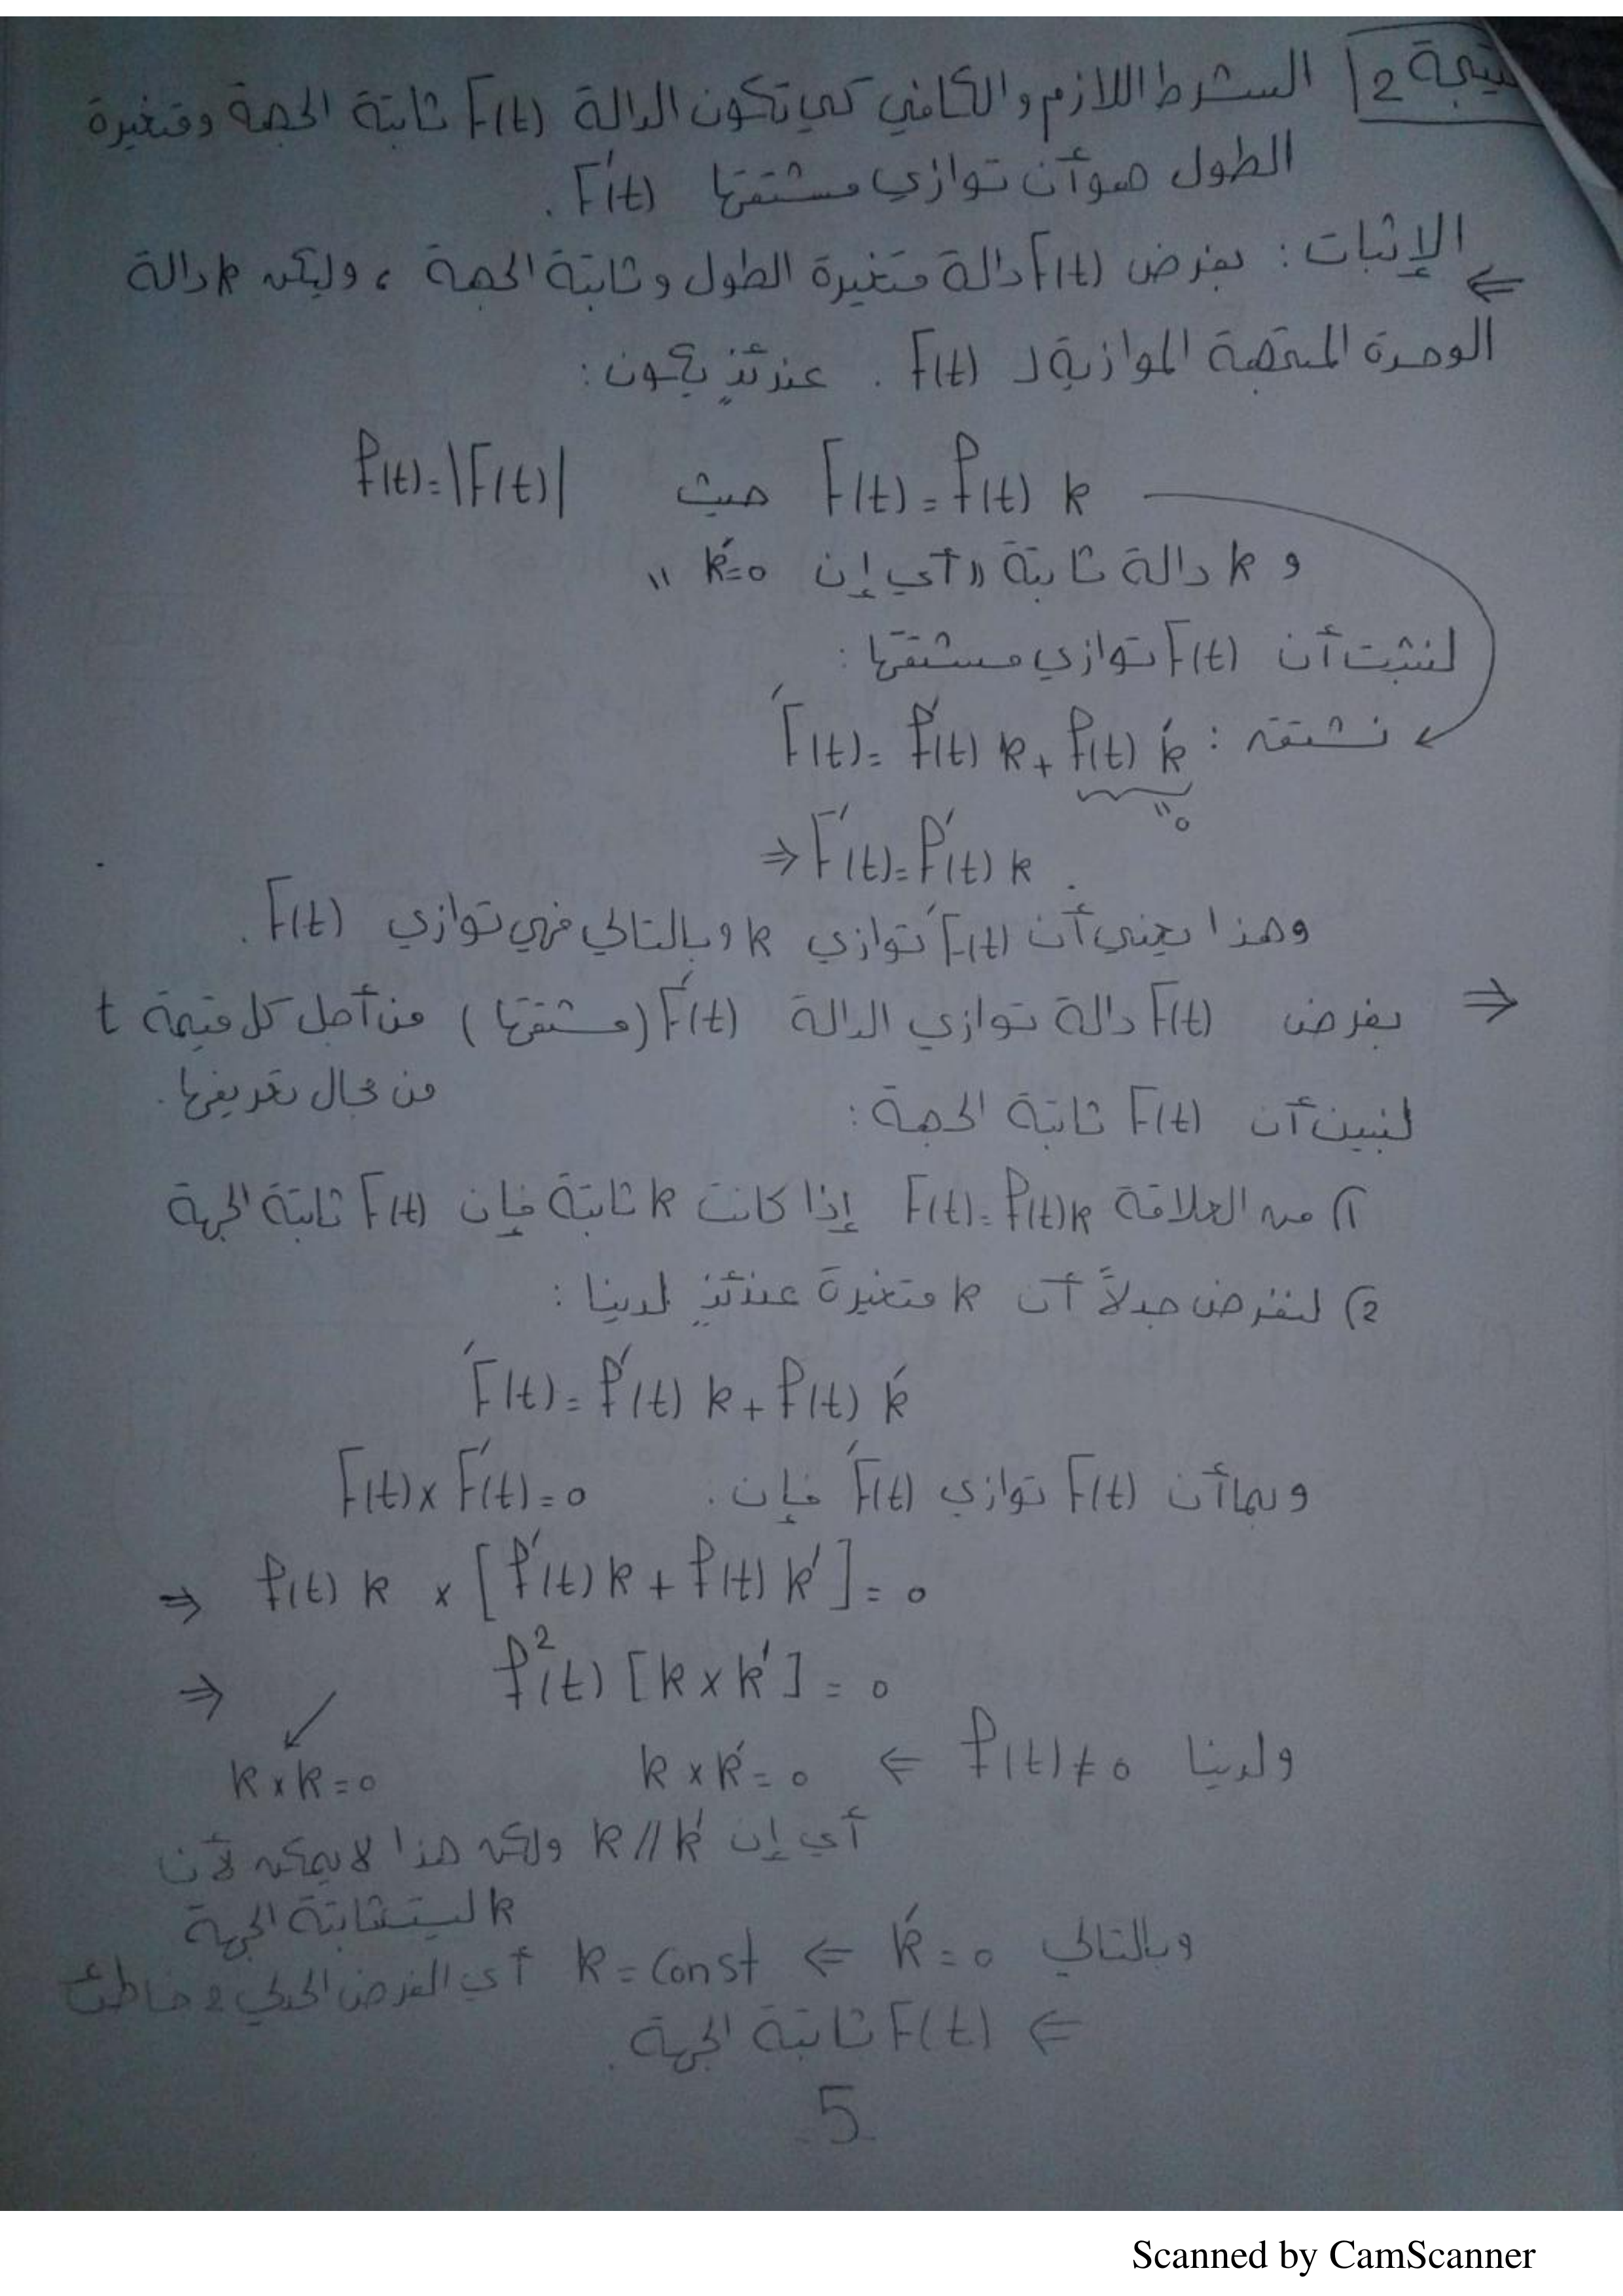 نتيجة 2 الشرط اللازم والكافي كي تكون الدالة F(t) ثابتة الجهة ومتغيرة
الطول هو أن توازي مشتقتها F'(t).
الإثبات: بفرض F(t) دالة متغيرة الطول وثابتة الجهة ، وليكن k دالة
⇐
الوحدة المتجهة الموازية لـ F(t) . عندئذٍ يكون:
F(t) = f(t) k حيث f(t) = |F(t)|
و k دالة ثابتة "أي إن k' = 0"
لنثبت أن F(t) توازي مشتقتها:
نشتق: F'(t) = f'(t) k + f(t) k'
"0
⇒ F'(t) = f'(t) k .
وهذا يعني أن F'(t) توازي k وبالتالي فهي توازي F(t) .
⇒ بفرض F(t) دالة توازي الدالة F'(t) (مشتقتها) من أجل كل قيمة t
من مجال تعريفها.
لنبين أن F(t) ثابتة الجهة:
1) من العلاقة F(t) = f(t) k إذا كانت k ثابتة فإن F(t) ثابتة الجهة
2) لنفرض جدلاً أن k متغيرة عندئذٍ لدينا:
F'(t) = f'(t) k + f(t) k'
وبما أن F(t) توازي F'(t) فإن. F(t) x F'(t) = 0
⇒ f(t) k x [f'(t) k + f(t) k'] = 0
⇒ f²(t) [k x k'] = 0
ولدينا f(t) ≠ 0 ⇐ k x k' = 0
k x k = 0
أي إن k // k' ولكن هذا لا يمكن لأن
k ليست ثابتة الجهة
وبالتالي k' = 0 ⇐ k = Const أي الفرض الجدلي 2 خاطئ
⇐ F(t) ثابتة الجهة.
5
Scanned by CamScanner